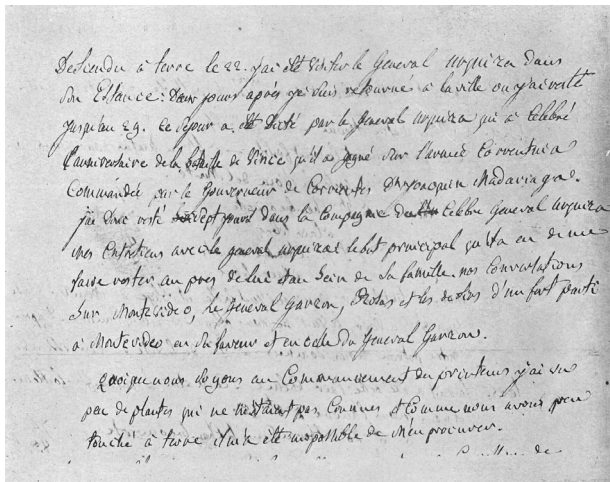 Desiendu à terre le 22. j'ai été visiter le General Urquiza dans
son Estance: Deux jours après je suis retourné à la ville ou j'ai resté
jusqu'au 29. ce séjour a été dicté par le General Urquiza qui a celebré
l'anniversaire de la bataille de Vince qu'il a gagné sur l'armée Correntina
Commandée par le Gouverneur de Corrientes Dn Joaquin Madariaga.
j'ai donc resté sept jours dans la Compagnie du Celebre General Urquiza
mes Entretiens avec le general Urquiza, le but principal qu'il a eu de me
faire rester au pres de lui et au Sein de Sa famille. nos Conversations
Sur Montevideo, le General Garzon, Rosas et les d'un fort parti
à Montevideo en sa faveur et en celle du General Garzon.
quoique nous soyons au Commancement du printems j'ai vu
peu de plantes qui ne pas Connues et Comme nous avons peu
touché à terre il m'a été impossible de m'en procurer.